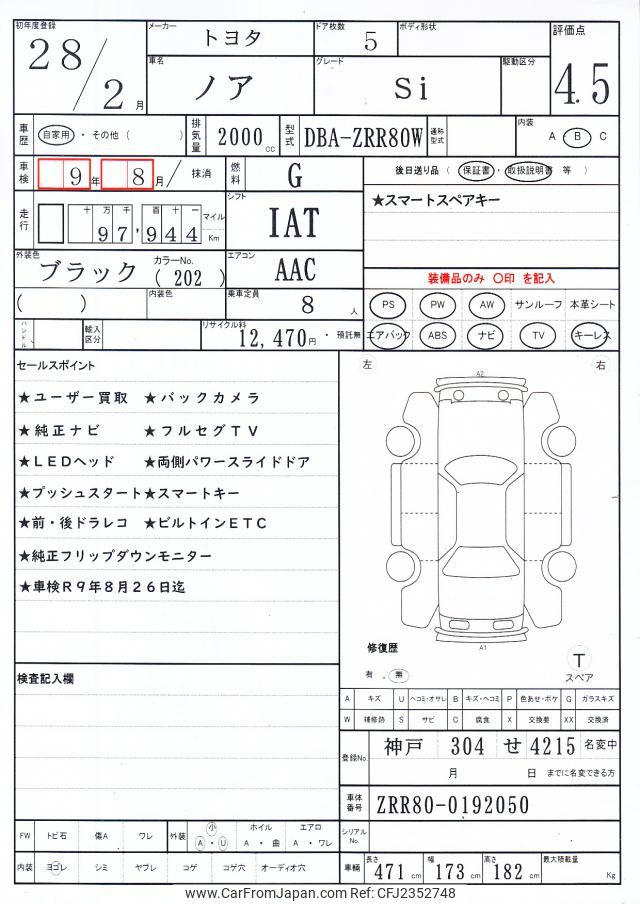 初年度登録 28/2月 メーカー トヨタ ドア枚数 5 ボディ形状 評価点 4.5
車名 ノア グレード Si 駆動区分
車歴 自家用 ・ その他 ( ) 排気量 2000 cc 型式 DBA-ZRR80W 通称型式 内装 A B C
車検 9年 8月 / 抹消 燃料 G 後日送り品 ( 保証書 ・ 取扱説明書 等 )
走行 十 万 千 百 十 一 97,944 マイル Km シフト IAT ★スマートスペアキー
外装色 ブラック カラーNo. ( 202 ) エアコン AAC 装備品のみ 〇印 を記入
( ) 内装色 乗車定員 8 人 PS PW AW サンルーフ 本革シート
ハンドル 輸入区分 リサイクル料 12,470円 ・ 預託無 エアバック ABS ナビ TV キーレス
セールスポイント
★ユーザー買取 ★バックカメラ
★純正ナビ ★フルセグTV
★LEDヘッド ★両側パワースライドドア
★プッシュスタート★スマートキー
★前・後ドラレコ ★ビルトインETC
★純正フリップダウンモニター
★車検R9年8月26日迄
左 右
A2
A1
修復歴
有 . 無
T
スペア
検査記入欄
A キズ U ヘコミ・オサレ B キズ・ヘコミ P 色あせ・ボケ G ガラスキズ
W 補修跡 S サビ C 腐食 X 交換要 XX 交換済
登録No. 神戸 304 せ 4215 名変中
月 日 までに名変できる方
車体番号 ZRR80-0192050
シリアルNo.
FW トビ石 傷A ワレ 外装 小 A ・ U ホイル A ・ 曲 エアロ A ・ ワレ
内装 ヨゴレ シミ ヤブレ コゲ コゲ穴 オーディオ穴
車輌 長さ 471 cm 幅 173 cm 高さ 182 cm 最大積載量 Kg
www.CarFromJapan.com Ref: CFJ2352748